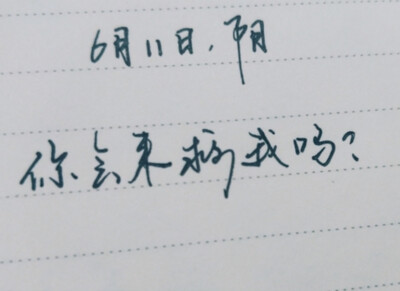 6月11日，阴
你会来救我吗？